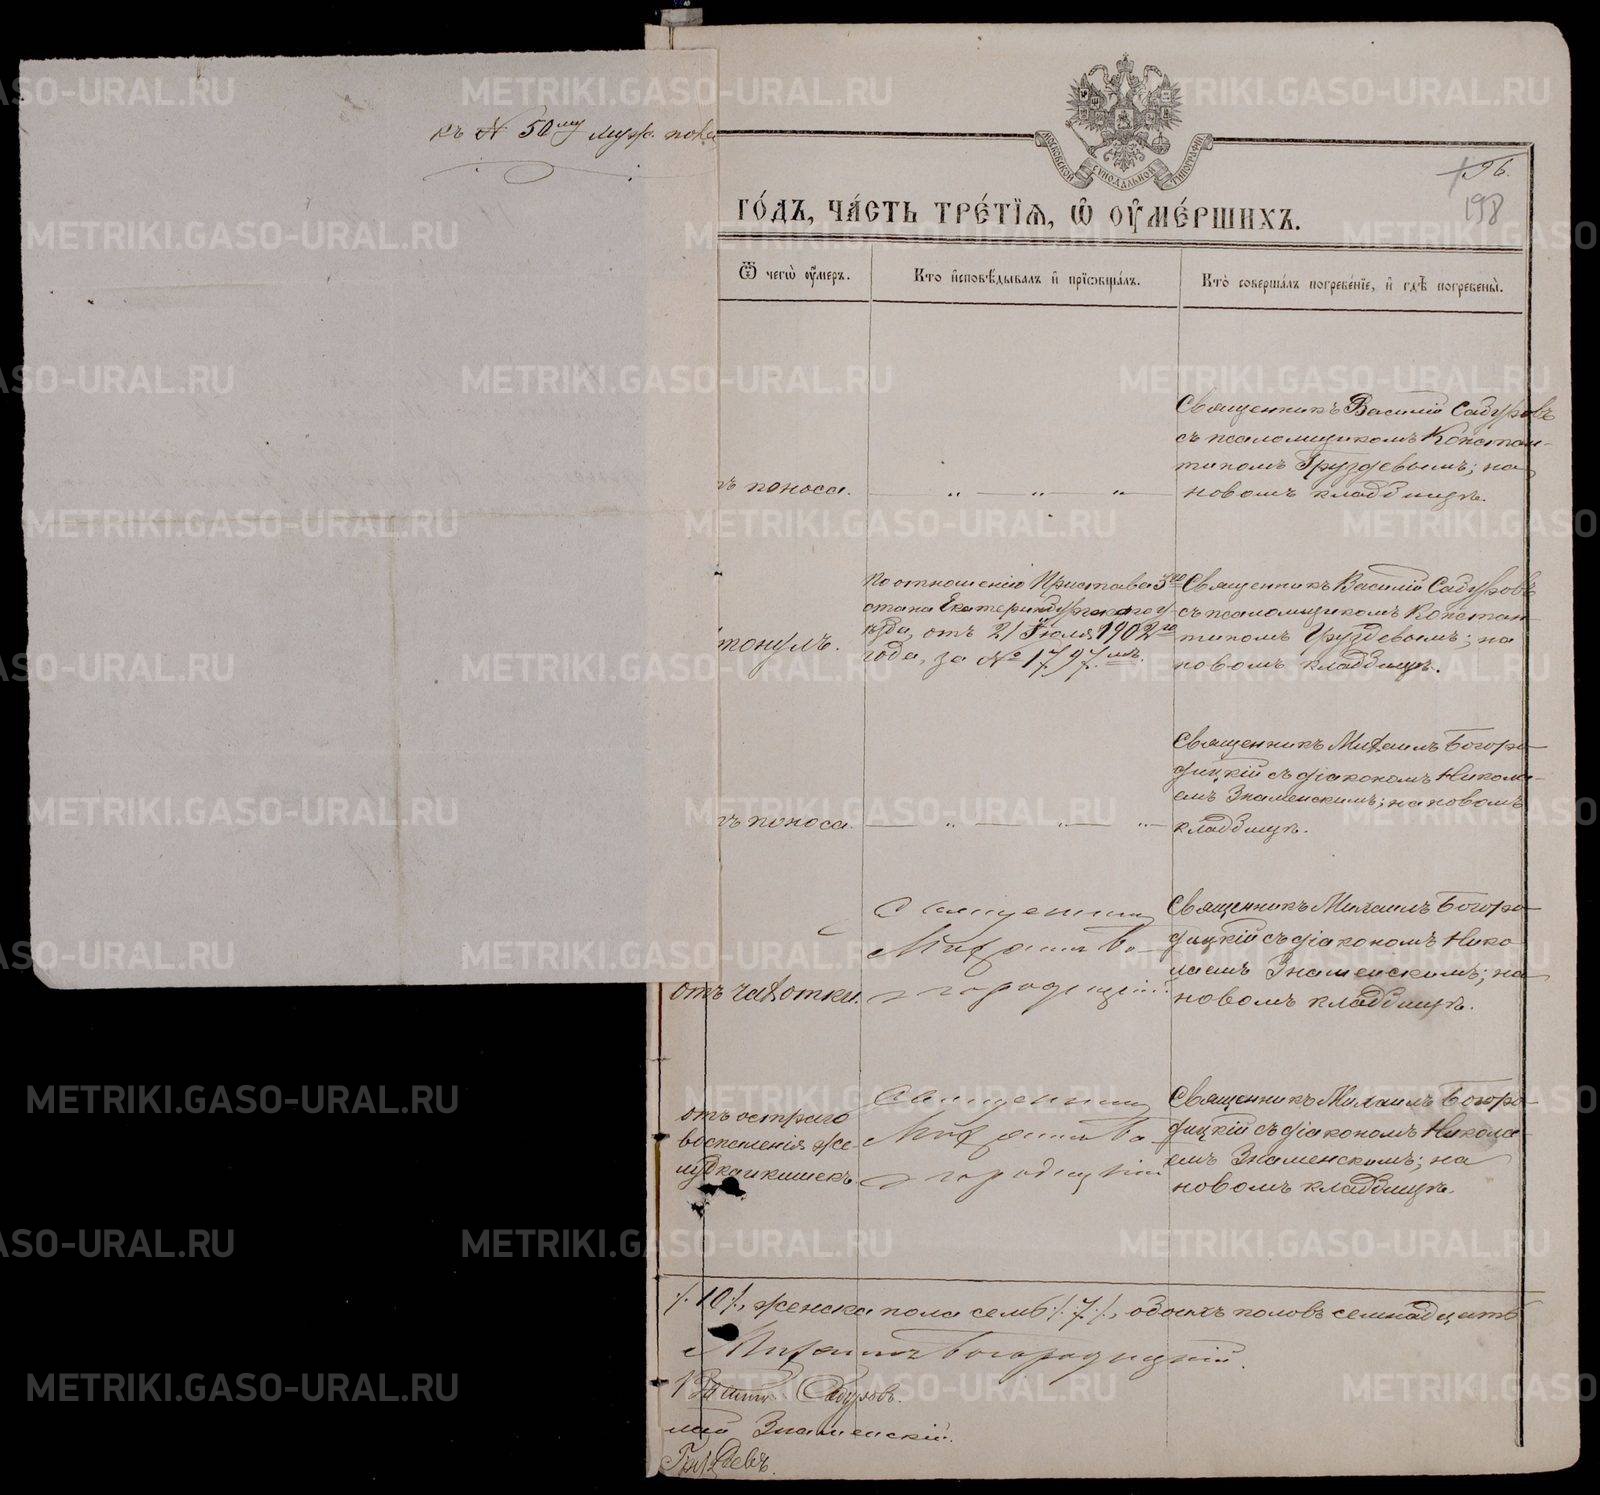 къ № 50му муж. пола
МОСКОВСКОЙ СѴНОДАЛЬНОЙ ТИПОГРАФІИ
196.
198
ГО́ДЪ, ЧА́СТЬ ТРЕ́ТІѦ, Ѽ ОУ҆МЕ́РШИХЪ.
Ѿ чегѡ̀ оу҆́меръ.
Кто̀ и҆сповѣ́дывалъ и҆ прїѡбща́лъ.
Кто̀ соверша́лъ погребе́нїе, и҆ гдѣ̀ погребены̀.
Священникъ Василій Сапуровъ
съ псаломщикомъ Констан-
тиномъ Груздевымъ; на
ъ поноса.
новомъ кладбищѣ.
По отношенію Пристава 3го
стана Екатеринбургскаго у-
ѣзда, отъ 21 Іюля 1902го
года, за № 1797мъ.
тонулъ.
Священникъ Василій Сапуровъ
съ псаломщикомъ Констан-
тиномъ Груздевымъ; на
новомъ кладбищѣ.
Священникъ Михаилъ Богоро-
дицкій съ діакономъ Никола-
емъ Знаменскимъ; на новомъ
ъ поноса.
кладбищѣ.
отъ чахотки.
Священникъ
Михаилъ Бо-
городицкій.
Священникъ Михаилъ Богоро-
дицкій съ діакономъ Нико-
лаемъ Знаменскимъ; на
новомъ кладбищѣ.
отъ остраго
воспаленія же-
лудка и кишекъ
Священникъ
Михаилъ Бо-
городицкій
Священникъ Михаилъ Богоро-
дицкій съ діакономъ Никола-
емъ Знаменскимъ; на
новомъ кладбищѣ.
/.10/., женска пола семь /.7./, обоихъ половъ семнадцать
Михаилъ Богородицкій.
Василій Сапуровъ.
лай Знаменскій.
Груздевъ.
METRIKI.GASO-URAL.RU